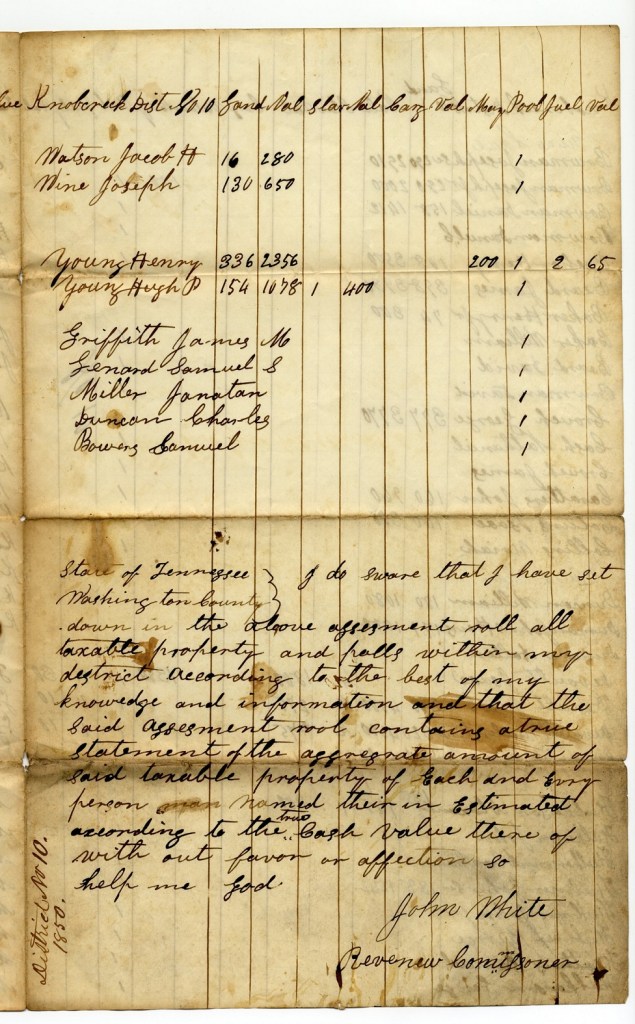 lue Knobcreek Dist No 10 Land Val Slav Val Carg Val Mny Pool Juel Val
Watson Jacob H 16 280 1
Wine Joseph 130 650 1
Young Henry 336 2356 200 1 2 65
Young Hugh P 154 1078 1 400 1
Griffith James M 1
Lenard Samuel S 1
Miller Jonatan 1
Duncan Charles 1
Bowers Samuel 1
State of Tennessee } I do sware that I have set
Washington County }
down in the above assesment roll all
taxable property and polls within my
district according to the best of my
knowedge and information and that the
said assesment rool contains a true
statement of the aggregrate amount of
said taxable property of Each and Evry
person man named their in Estimated
according to the true Cash value there of
with out favor or affection so
help me God
John White
Revenew Comissoner
District No 10.
1850.